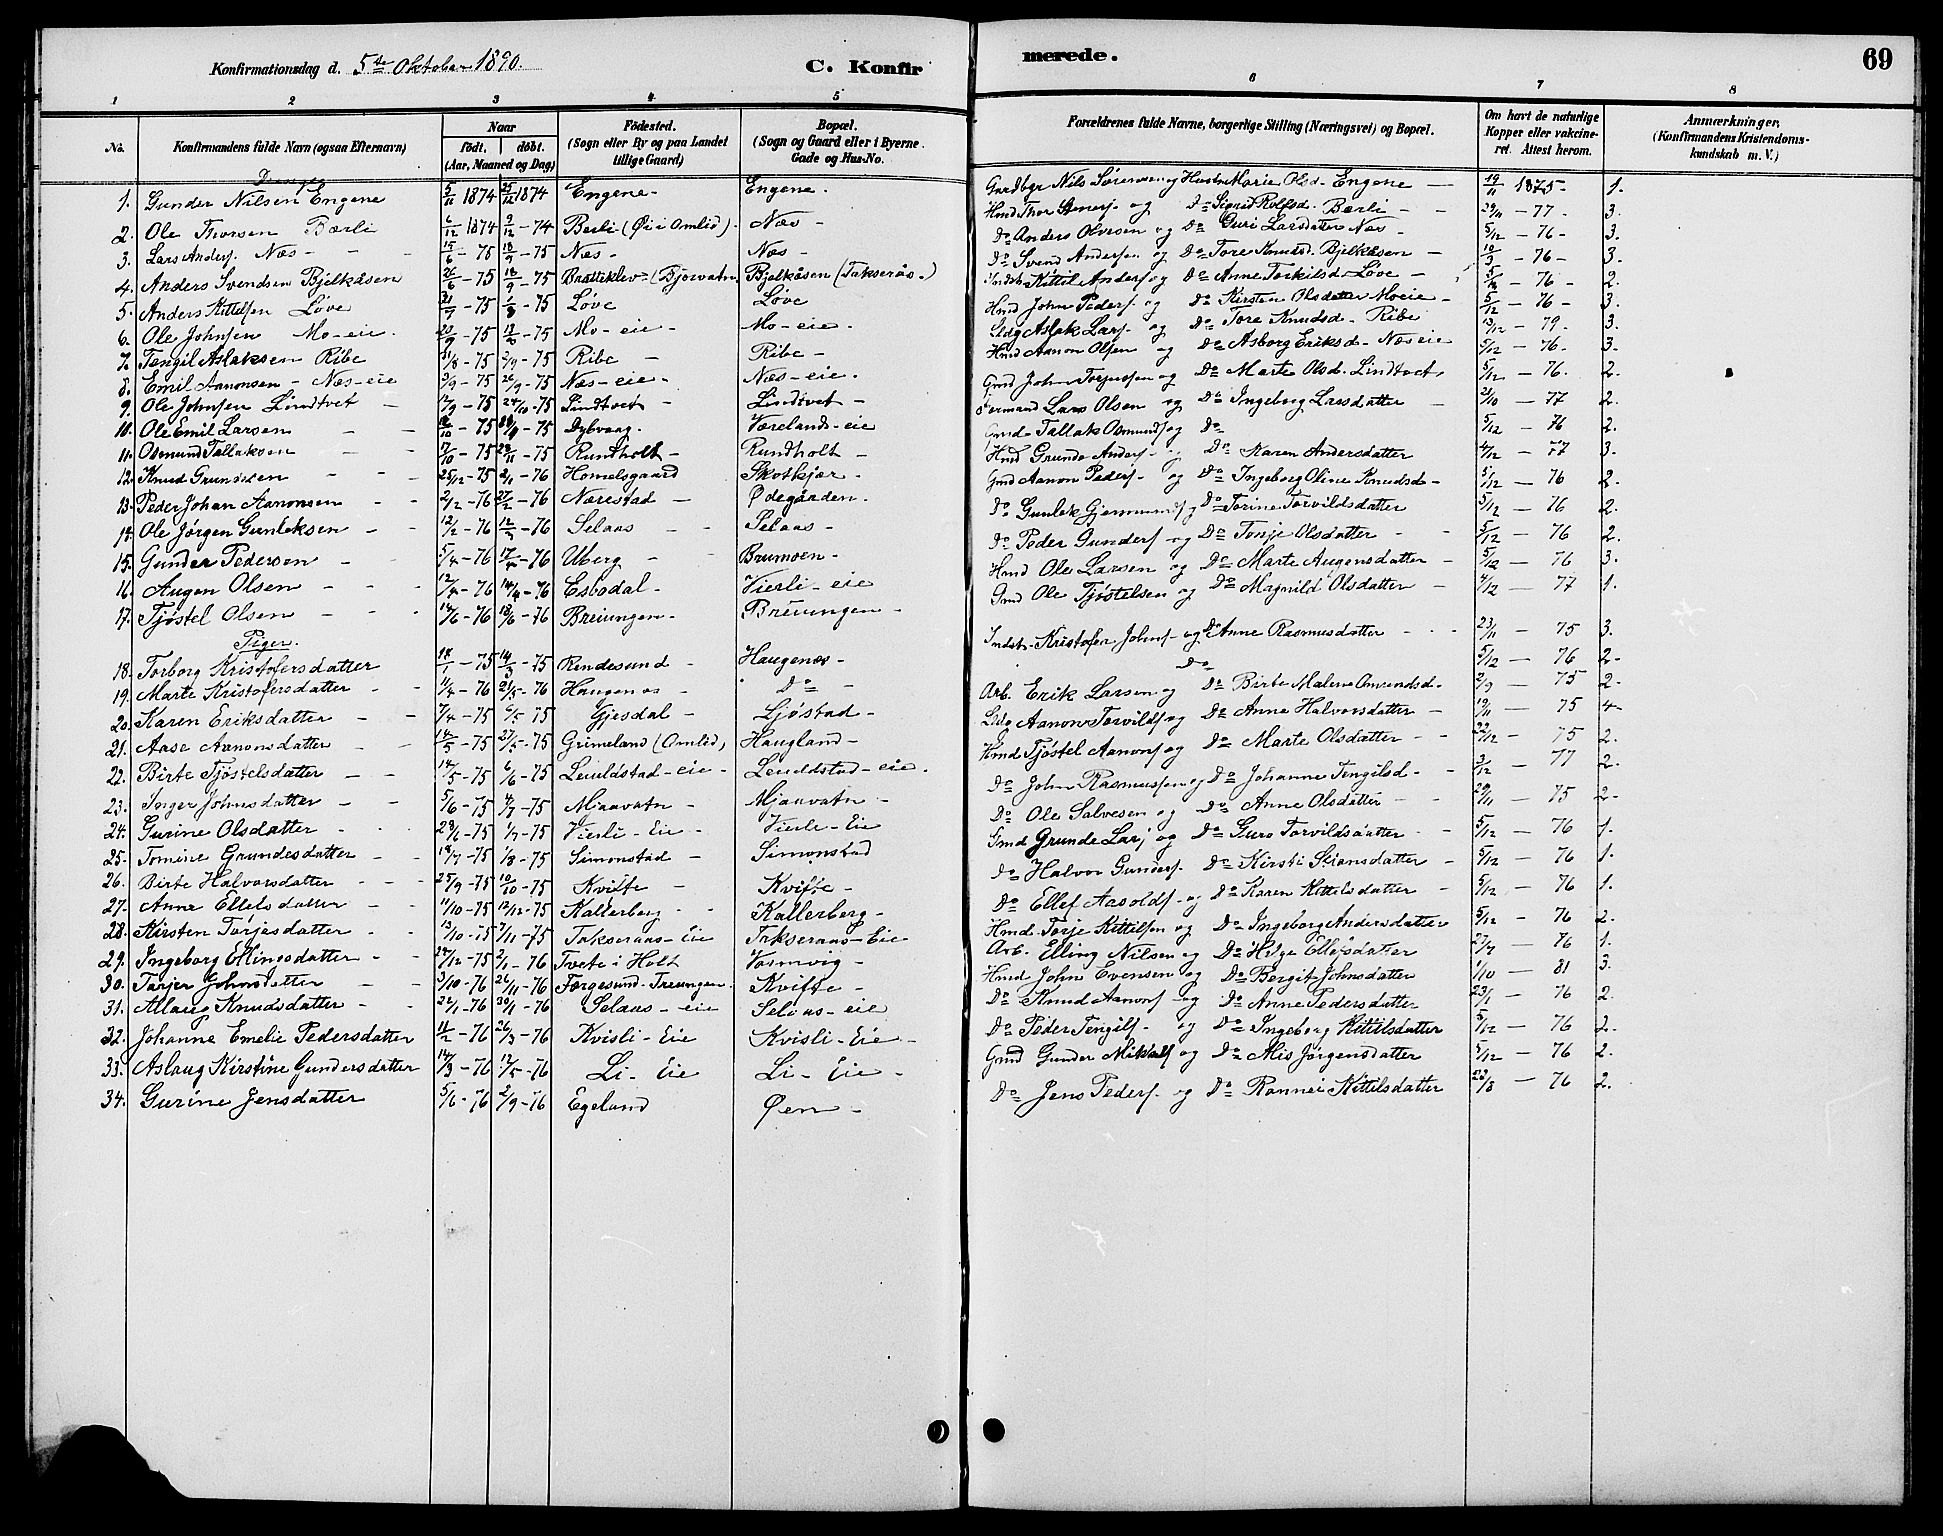 Konfirmationsdag d. 5te Oktober 1890. C. Konfirmerede. 69
1 2 3 4 5 6 7 8
No. Konfirmandens fulde Navn (ogsaa Efternavn) Naar födt. döbt. (Aar, Maaned og Dag) Födested. (Sogn eller By og paa Landet tillige Gaard) Bopæl. (Sogn og Gaard eller i Byerne Gade og Hus-No. Forældrenes fulde Navne, borgerlige Stilling (Næringsvei) og Bopæl. Om havt de naturlige Kopper eller vakcineret. Attest herom. Anmærkninger, (Konfirmandens Kristendomskundskab m. V.)
Drenge
1. Gunder Nilsen Engene 5/11 1874 25/12 1874 Engene - Engene - Gaardbgr Nils Sørensen og Hustru Marie Olsd. Engene 19/11 1875 - 1.
2. Ole Thorsen Bærli 6/12 1874 9/12 - 74 Berli (Øi i Omlid) - Næs - Hmd Thor Stenersj. og Do Sigrid Rolfsd. Bærli - 29/11 - 77 - 3.
3. Lars Andersj. Næs - 15/6 - 75 18/9 - 75 Næs - Næs - Do Anders Olvesen og Do Guri Larsdatter Næs - 5/12 - 76 - 3.
4. Anders Svendsen Bjelkåsen 26/6 - 75 18/9 - 75 Bratteklev (Bjorvatn) Bjelkåsen (Takserås -) Do Svend Andersen og Do Tore Knudsd. Bjelkåsen - 10/3 - 76 - 3.
5. Anders Kittelsen Løve 31/7 - 75 1/8 - 75 Løve Løve Indst. Kittil Andersj og Do Anne Torkilsd. Løve - - 76 - 2.
6. Ole Johnsen Mo-eie - 20/9 - 75 - 75 Mo-eie - Mo-eie - Hmd John Pedersj. og Do Kirsten Olsdatter Moeie - 5/12 - 76 - 3.
7. Tengil Aslaksen Ribe 31/8 - 75 2/9 - 75 Ribe - Ribe - Ldg Aslak Larsj. og Do Tore Knudsd. Ribe 13/12 - 79. 3.
8. Emil Aanonsen - Næs-eie 3/9 - 75 26/9 - 75 Næs-eie - Næs-eie - Hmd Aanon Olsen og Do Asborg Eriksd. Næseie 5/12 - 76. 3.
9. Ole Johnsen Lindtvet - 12/9 - 75 24/10 - 75 Lindtvet - Lindtvet - Gmd John Torjussen og Do Marte Olsd. Lindtvet 5/12 - 76. 2.
10. Ole Emil Larsen - - /10 - 75 - 75 Dybvaag. Væreland-eie Lars Olsen og Do Ingeborg Larsdatter - 21/10 - 77 2.
11. Osmund Tallaksen - - 9/10 - 75 28/11 - 75 Rundholt - Rundholt - Gmd Tallak Osmundsj og Do 5/12 - 76 2.
12. Knud Grundesen - - 25/12 - 75 2/1 - 76 Homelsgaard Skotkjær - Hmd Grunde Andersj. - og Do Karen Andersdatter 4/12 - 77 3.
13. Peder Johan Aanonsen - - 2/2 - 76 27/2 - 76 Nærestad - Ødegården - Gmd Aanon Pedersj. og Do Ingeborg Oline Knudsd. - 5/12 - 76 2.
14. Ole Jørgen Gunleksen - - 12/2 - 76 12/3 - 76 Selaas - - Selaas - Do Gunlek og Do Torine Torvildsdatter 5/12 - 76 2.
15. Gunder Pedersen - - 5/4 - 76 17/4 - 76 Uberg - - Brumoen - Do Peder Gundersj - og Do Tonje Olsdatter - - 5/12 - 76 2.
16. Augen Olsen - - 12/4 - 76 14/4 - 76 Esbodal - Vierli-eie Hmd Ole Larsen og Do Marte Augensdatter - 5/12 - 76 3.
17. Tjøstel Olsen - - 14/6 - 76 18/6 - 76 Breiungen - Breiungen - Gmd Ole Tjøstelsen og Do Magnild Olsdatter - 4/12 - 77 1.
Piger.
18. Torborg Kristofersdatter 18/1 - 75 14/3 - 75 Rendesund - Haugenæs - Indst. Kristofer Johnsj - og Do Anne Rasmusdatter - - - 23/11 - 75 3.
19. Marte Kristofersdatter - - 11/4 - 76 21/5 - 76 Haugenæs - Do - Do 5/12 - 76 2.
20. Karen Eriksdatter - - 7/4 - 75 6/5 75 Gjesdal - Ljøstad - Arb. Erik Larsen og Do Birte Malene Omundsd. 2/9 - 75 2.
21. Aase Aanonsdatter - - 14/5 - 75 27/5 - 75 Grimeland (Omlid) Haugland - Ldg Aanon Torvildsj og Do Anne Halvorsdatter - 19/11 - 75 4.
22. Birte Tjøstelsdatter - - 14/5 - 75 6/6 - 75 Leuldstad-eie - Leuldstad-eie - Hmd Tjøstel Aanonsj og Do Marte Olsdatter - - 22/12 - 75 2.
23. Inger Johnsdatter - - 5/6 - 75 4/7 - 75 Mjaavatn - Mjaavatn - Do John Rasmussen og Do Johanne Tengilsd. - - 3/12 - 77 2.
24. Gurine Olsdatter - - 28/6 - 75 1/7 - 75 Vierli-Eie - Vierli-Eie Do Ole Salvesen og Do Anne Olsdatter - - 29/11 - 75 2.
25. Tomine Grundesdatter - - 18/7 - 75 1/8 - 75 Simonstad - Simonstad Gmd Grunde Larsj og Do Guro Torvildsdatter - - 5/12 - 76 1.
26. Birte Halvorsdatter - - - 25/9 - 75 10/10 - 75 Kvifte - Kvifte - Do Halvor Gundersj. Do Kirsti Stiansdatter - 5/12 - 76 1.
27. Anne Ellefsdatter - - 11/10 - 75 12/12 - 75 Kallerberg - - Kallerberg - Do Ellef Aasoldsj. - og Do Karen Kittelsdatter - 5/12 - 76 1.
28. Kirsten Torjesdatter - - 13/10 - 75 7/11 - 75 Takseraas-Eie Takseraas-Eie Hmd. Torje Kittilsen og Do Ingeborg Andersdatter 5/12 - 76 2.
29. Ingeborg Ellingsdatter - - 24/12 - 75 2/1 - 76 Tvete i Holt Vasmvig - Arb. Elling Nilsen og Do Helge Ellefsdatter 27/7 - 76 1.
30. Torjer Johnsdatter - - 3/10 - 76 26/11 - 76 Færgesund - Treungen. Kvifte - Hmd John Evensen og Do Bergit Johnsdatter 1/10 - 81 3.
31. Allaug Knudsdatter - - 22/1 - 76 30/1 - 76 Selaas-eie Selaas-eie Do Knud Aanonsj - og Do Anne Pedersdatter 23/1 - 76 2.
32. Johanne Emelie Pedersdatter 11/2 - 76 26/3 - 76 Kvisli-Eie Kvisli-Eie - Do Peder Tengilsj - og Do Ingeborg Kittilsdatter 5/12 - 76 2.
33. Aslaug Kirstine Gundersdatter 14/3 - 76 17/5 - 76 Li-Eie Li-Eie - Gmd Gunder Mikalsj og Do Mis Jørgensdatter 5/12 - 76 2.
34. Gurine Jensdatter 5/6 - 76 2/9 - 76 Egeland Øen - Do Jens Pedersj. - og Do Rannei Kittilsdatter 22/8 - 76 2.